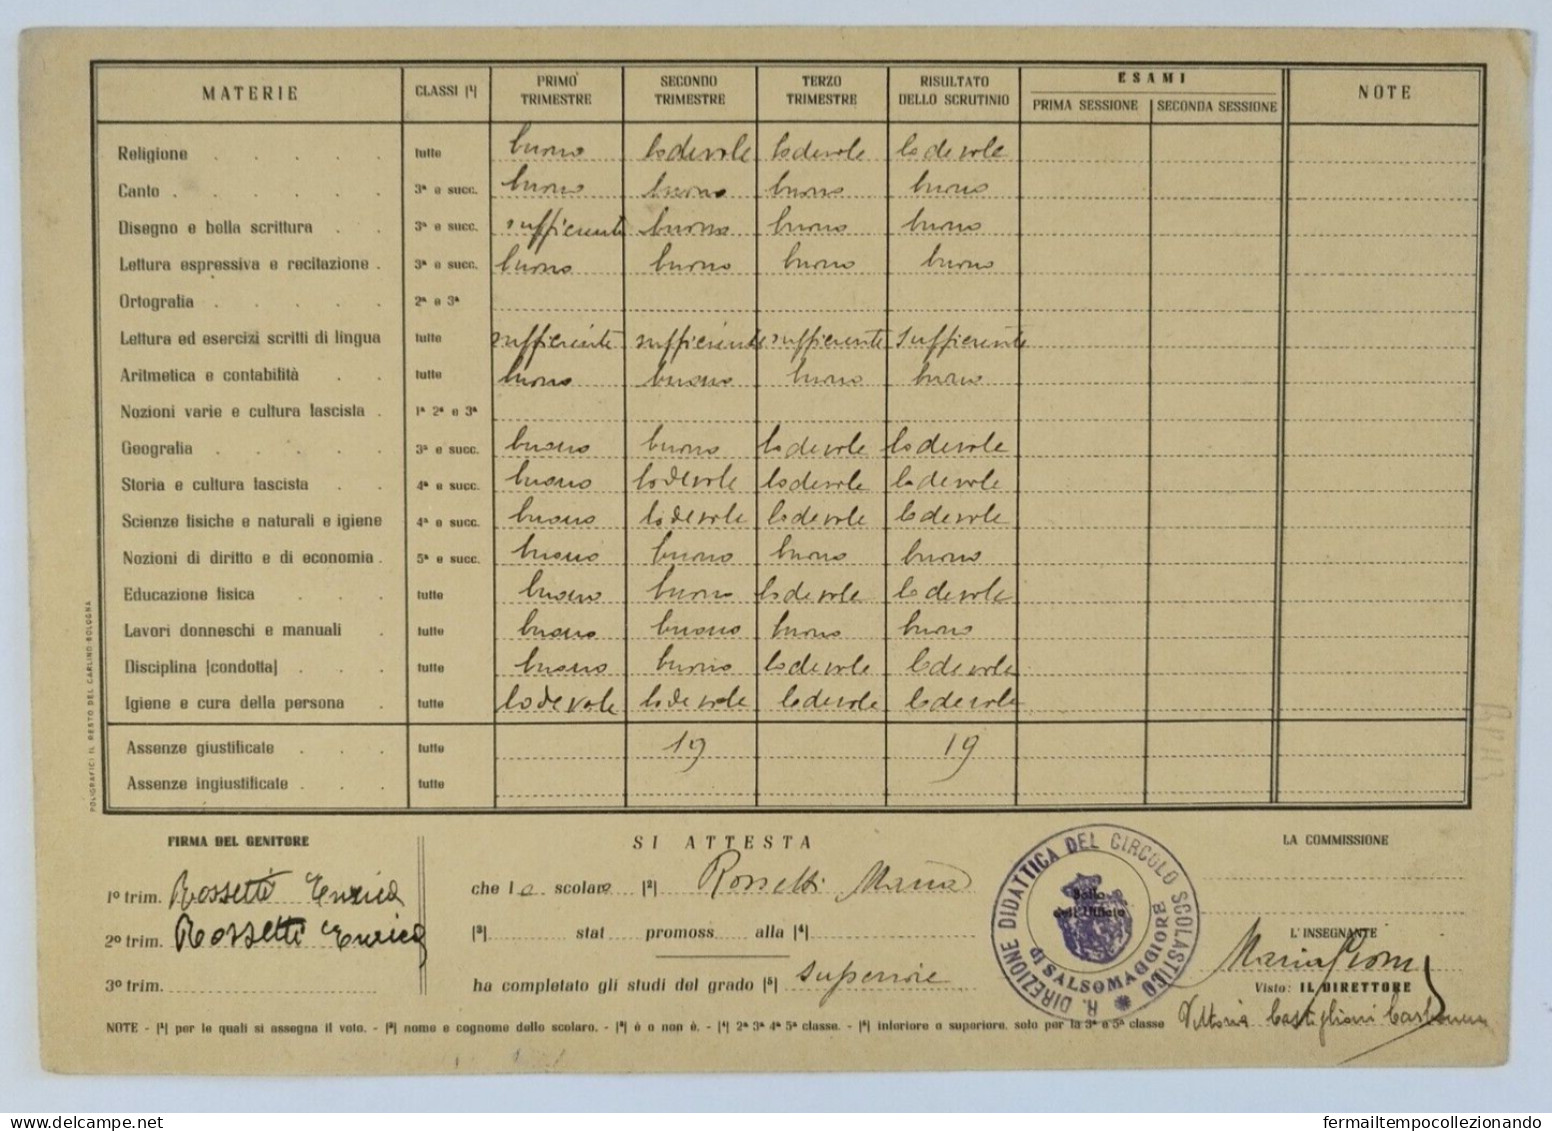 MATERIE CLASSI [¹] PRIMO TRIMESTRE SECONDO TRIMESTRE TERZO TRIMESTRE RISULTATO DELLO SCRUTINIO ESAMI PRIMA SESSIONE SECONDA SESSIONE NOTE
Religione tutte buono lodevole lodevole lodevole
Canto 3ª e succ. buono buono buono buono
Disegno e bella scrittura 3ª e succ. sufficiente buono buono buono
Lettura espressiva e recitazione 3ª e succ. buono buono buono buono
Ortografia 2ª e 3ª
Lettura ed esercizi scritti di lingua tutte sufficiente sufficiente sufficiente sufficiente
Aritmetica e contabilità tutte buono buono buono buono
Nozioni varie e cultura fascista 1ª 2ª e 3ª
Geografia 3ª e succ. buono buono lodevole lodevole
Storia e cultura fascista 4ª e succ. buono lodevole lodevole lodevole
Scienze fisiche e naturali e igiene 4ª e succ. buono lodevole lodevole lodevole
Nozioni di diritto e di economia 5ª e succ. buono buono buono buono
Educazione fisica tutte buono buono lodevole lodevole
Lavori donneschi e manuali tutte buono buono buono buono
Disciplina [condotta] tutte buono buono lodevole lodevole
Igiene e cura della persona tutte lodevole lodevole lodevole lodevole
Assenze giustificate tutte 19 19
Assenze ingiustificate tutte
POLIGRAFICI IL RESTO DEL CARLINO BOLOGNA
FIRMA DEL GENITORE
1º trim. Rossetti Enrico
2º trim. Rossetti Enrico
3º trim.
SI ATTESTA
che la scolara [²] Rossetti Maria
[³] stat promoss alla [⁴]
ha completato gli studi del grado [⁵] superiore
R. DIREZIONE DIDATTICA DEL CIRCOLO SCOLASTICO
DI SALSOMAGGIORE
Bollo
dell'Ufficio
LA COMMISSIONE
L'INSEGNANTE
Maria
Visto: IL DIRETTORE
Vittoria Castiglioni
NOTE - [¹] per le quali si assegna il voto. - [²] nome e cognome dello scolaro. - [³] è o non è. - [⁴] 2ª 3ª 4ª 5ª classe. - [⁵] inferiore o superiore, solo per la 3ª e 5ª classe
fermailtempocollezionando